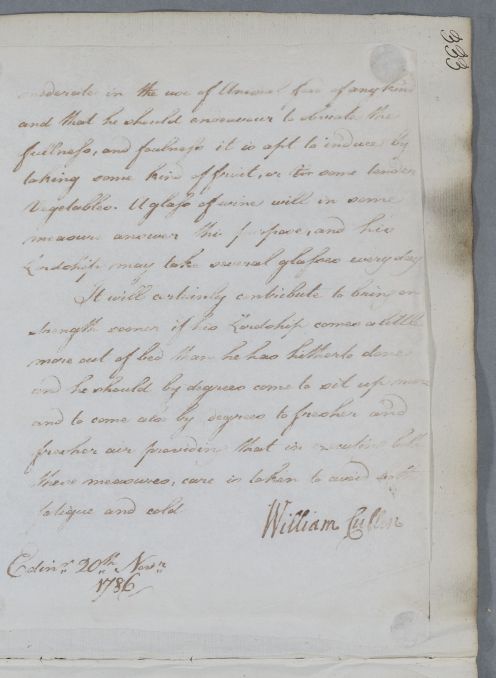 333
moderate in the use of Animal food of any kind
and that he should endeavour to obviate the
fullness, and foulness it is apt to induce by
taking some kind of fruit, or some tender
Vegetables. A glass of wine will in some
measure answer this purpose, and his
Lordship may take several glasses every day
It will certainly contribute to bring on
strength sooner if his Lordship comes a little
more out of bed than he has hitherto done
and he should by degrees come to sit up more
and to come also by degrees to fresher and
fresher air providing that in executing both
these measures, care is taken to avoid both
fatigue and cold
William Cullen
Edinr. 20th Novr.
1786